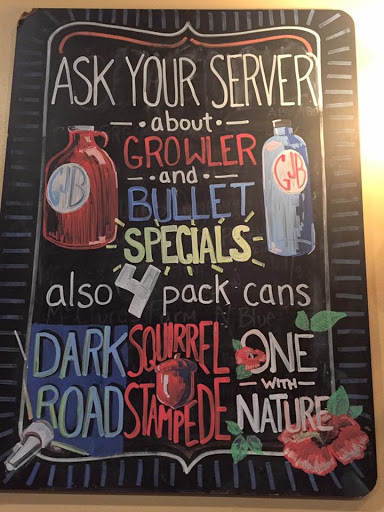 ASK YOUR SERVER
about
GROWLER
and
BULLET
SPECIALS
GJB
GJB
also 4 pack cans
DARK ROAD
SQUIRREL STAMPEDE
ONE WITH NATURE